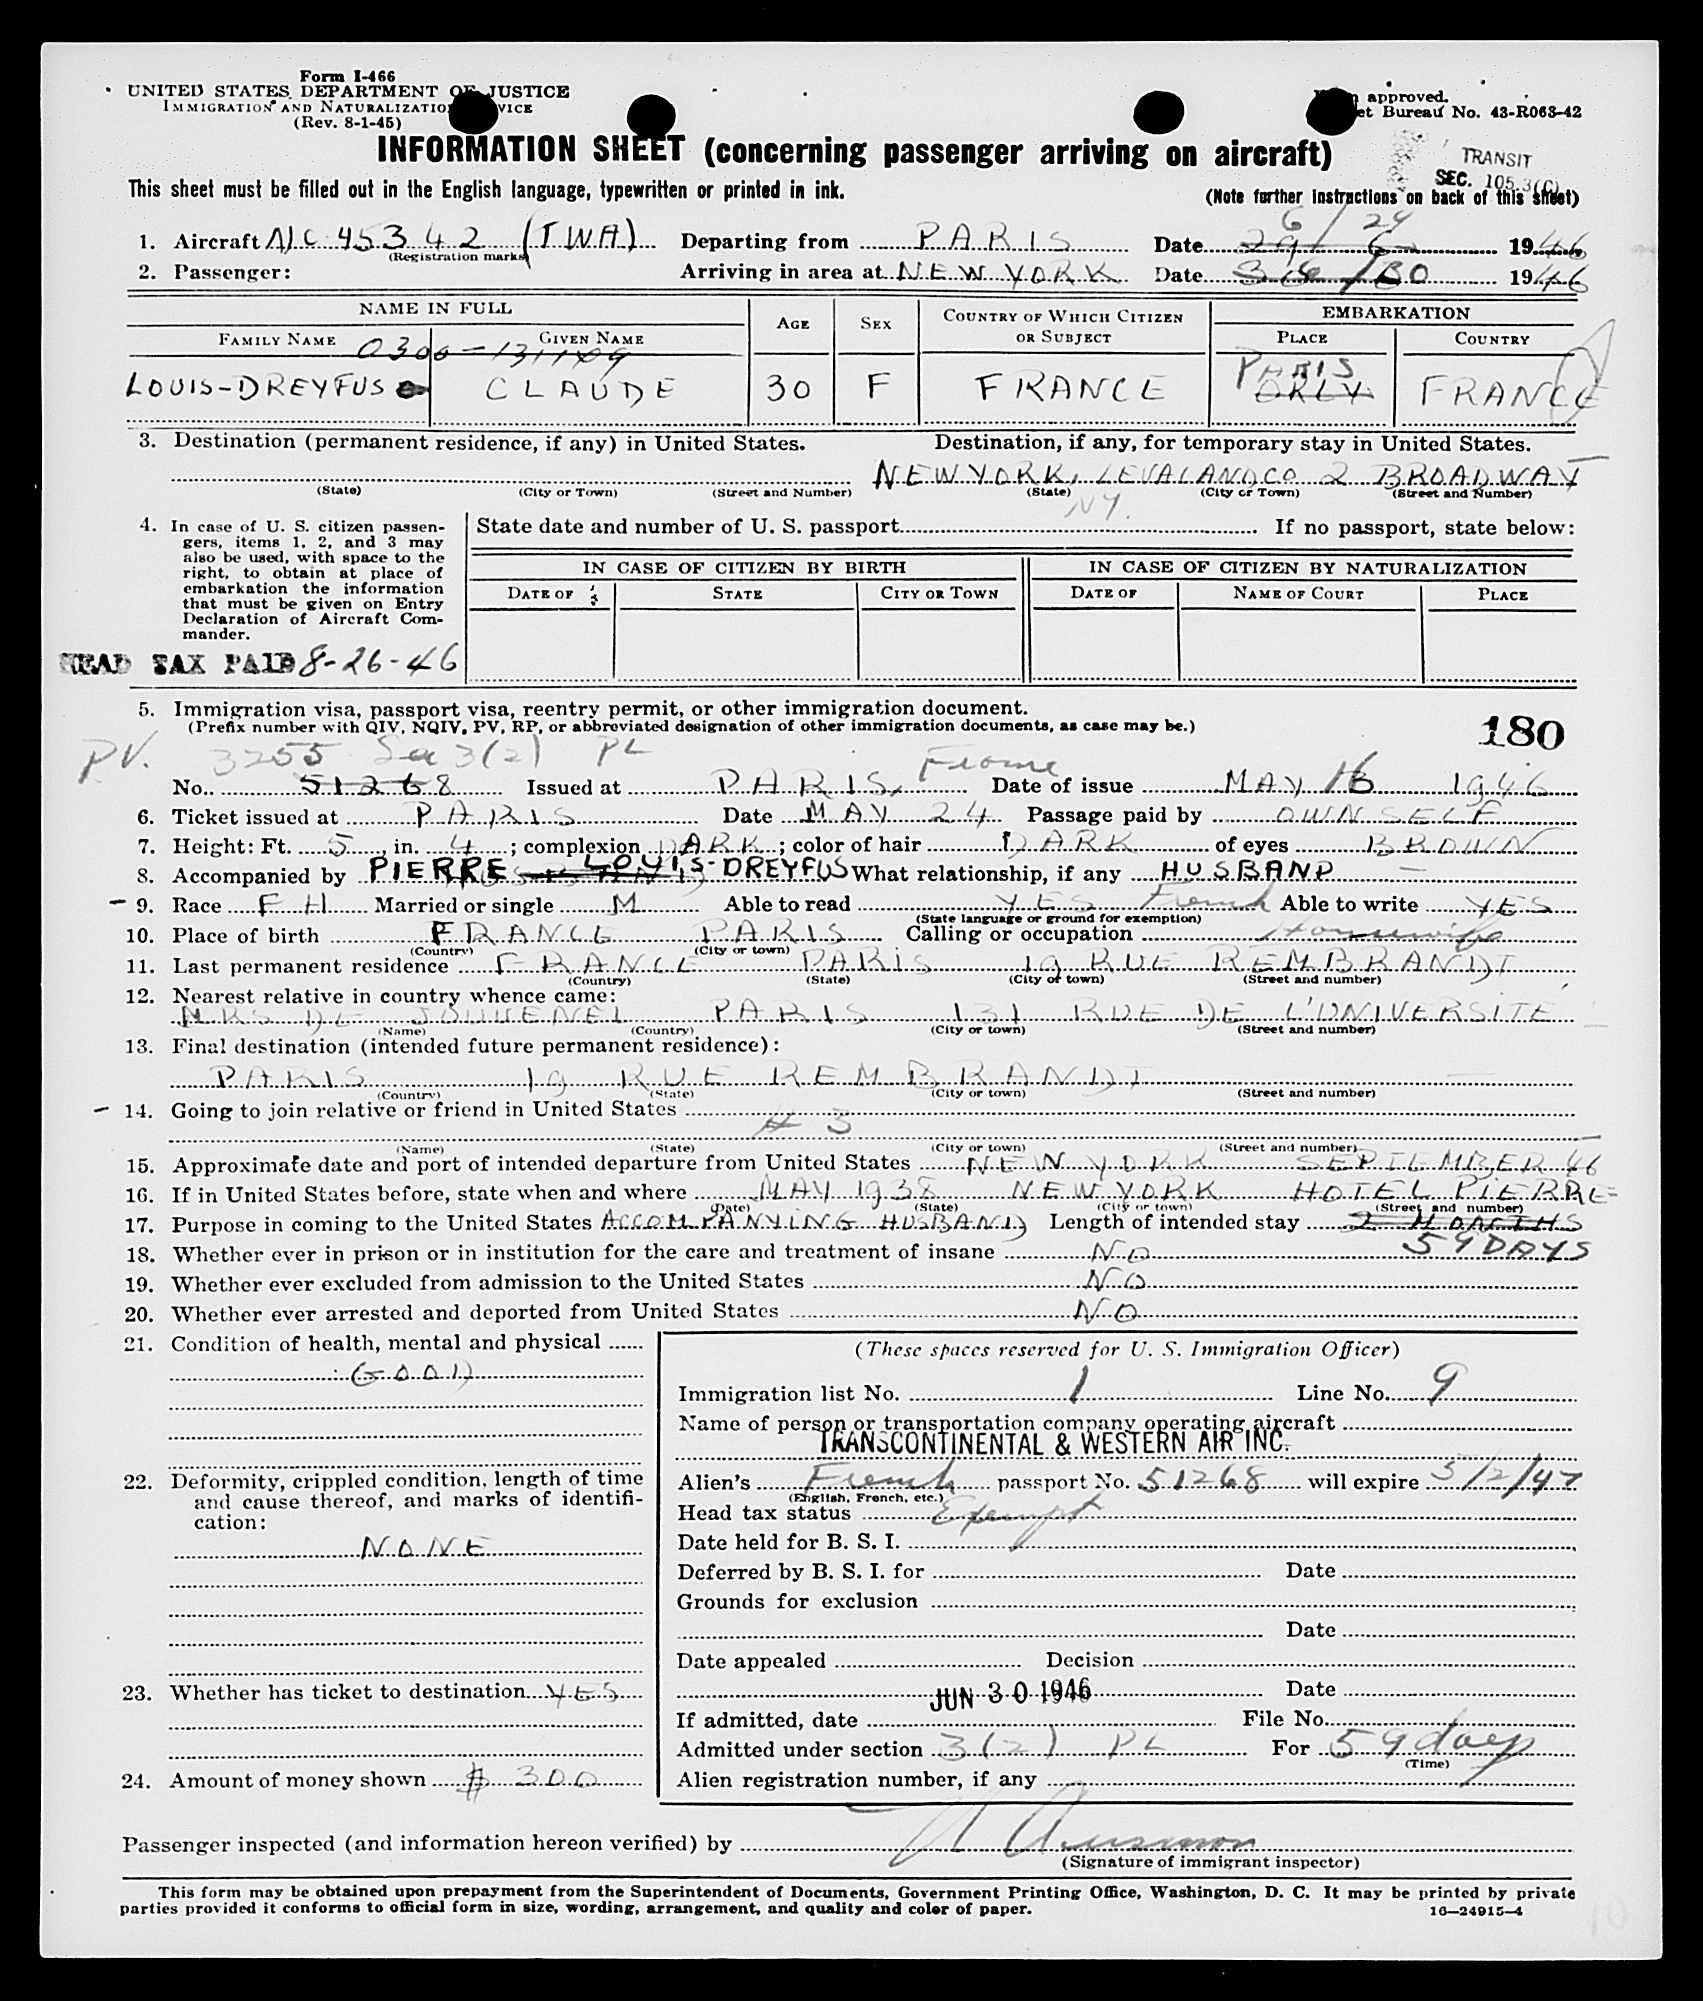 Form I-466
UNITED STATES DEPARTMENT OF JUSTICE
IMMIGRATION AND NATURALIZATION SERVICE
(Rev. 8-1-45)
approved.
et Bureau No. 43-R063-42
INFORMATION SHEET (concerning passenger arriving on aircraft)
TRANSIT
SEC. 105.3(C)
This sheet must be filled out in the English language, typewritten or printed in ink.
(Note further instructions on back of this sheet)
6/29
1. Aircraft NC 45342 (TWA) Departing from PARIS Date 29/6 1946
(Registration marks)
2. Passenger: Arriving in area at NEW YORK Date /30 1946
NAME IN FULL AGE SEX COUNTRY OF WHICH CITIZEN OR SUBJECT EMBARKATION
FAMILY NAME GIVEN NAME PLACE COUNTRY
0300-131109
PARIS
LOUIS-DREYFUS CLAUDE 30 F FRANCE ORLY FRANCE
3. Destination (permanent residence, if any) in United States. Destination, if any, for temporary stay in United States.
NEW YORK, LEVAL AND CO 2 BROADWAY
(State) (City or Town) (Street and Number) (State) (City or Town) (Street and Number)
NY.
4. In case of U. S. citizen passengers, items 1, 2, and 3 may also be used, with space to the right, to obtain at place of embarkation the information that must be given on Entry Declaration of Aircraft Commander.
State date and number of U. S. passport If no passport, state below:
IN CASE OF CITIZEN BY BIRTH IN CASE OF CITIZEN BY NATURALIZATION
DATE OF STATE CITY OR TOWN DATE OF NAME OF COURT PLACE
HEAD TAX PAID 8-26-46
5. Immigration visa, passport visa, reentry permit, or other immigration document.
(Prefix number with QIV, NQIV, PV, RP, or abbreviated designation of other immigration documents, as case may be.)
180
PV. 3255 Sec 3(2) PL
No. 51268 Issued at PARIS, France Date of issue MAY 16 1946
6. Ticket issued at PARIS Date MAY 24 Passage paid by OWN SELF
7. Height: Ft. 5, in. 4; complexion DARK; color of hair DARK of eyes BROWN
8. Accompanied by PIERRE LOUIS-DREYFUS What relationship, if any HUSBAND
9. Race FH Married or single M Able to read YES French Able to write YES
(State language or ground for exemption)
10. Place of birth FRANCE PARIS Calling or occupation Housewife
(Country) (City or town)
11. Last permanent residence FRANCE PARIS 19 RUE REMBRANDT
(Country) (State) (City or town) (Street and number)
12. Nearest relative in country whence came:
MRS DE JOUVENEL PARIS 131 RUE DE L'UNIVERSITE
(Name) (Country) (City or town) (Street and number)
13. Final destination (intended future permanent residence):
PARIS 19 RUE REMBRANDT
(Country) (State) (City or town) (Street and number)
14. Going to join relative or friend in United States
# 3
(Name) (State) (City or town) (Street and number)
15. Approximate date and port of intended departure from United States NEW YORK SEPTEMBER 46
16. If in United States before, state when and where MAY 1938 NEW YORK HOTEL PIERRE
(Date) (State) (City or town) (Street and number)
17. Purpose in coming to the United States ACCOMPANYING HUSBAND Length of intended stay 2 MONTHS
59 DAYS
18. Whether ever in prison or in institution for the care and treatment of insane NO
19. Whether ever excluded from admission to the United States NO
20. Whether ever arrested and deported from United States NO
21. Condition of health, mental and physical
GOOD
22. Deformity, crippled condition, length of time and cause thereof, and marks of identification:
NONE
23. Whether has ticket to destination YES
24. Amount of money shown $ 300
(These spaces reserved for U. S. Immigration Officer)
Immigration list No. 1 Line No. 9
Name of person or transportation company operating aircraft
TRANSCONTINENTAL & WESTERN AIR INC.
Alien's French passport No. 51268 will expire 5/2/47
(English, French, etc.)
Head tax status Exempt
Date held for B. S. I.
Deferred by B. S. I. for Date
Grounds for exclusion
Date
Date appealed Decision
Date
JUN 30 1946
If admitted, date File No.
Admitted under section 3(2) PL For 59 days
(Time)
Alien registration number, if any
Passenger inspected (and information hereon verified) by
(Signature of immigrant inspector)
This form may be obtained upon prepayment from the Superintendent of Documents, Government Printing Office, Washington, D. C. It may be printed by private
parties provided it conforms to official form in size, wording, arrangement, and quality and color of paper.
16—24915-4